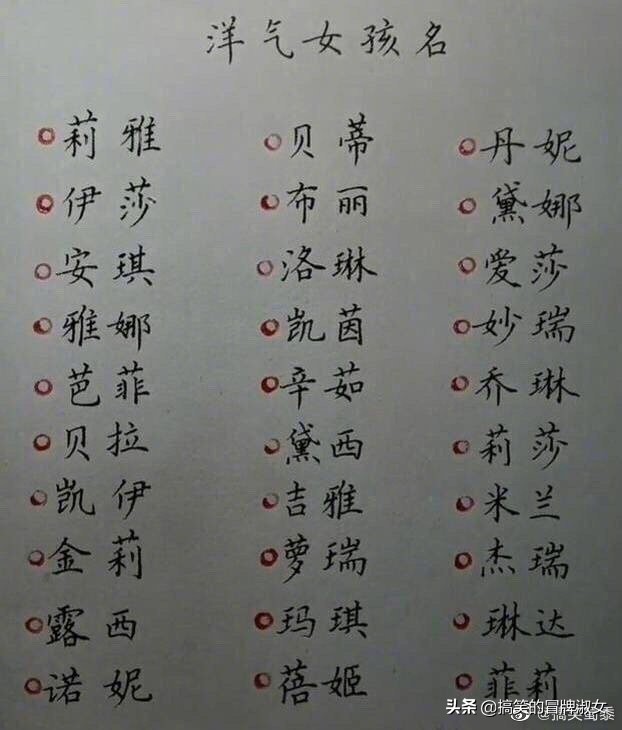 洋气女孩名
莉雅 贝蒂 丹妮
伊莎 布丽 黛娜
安琪 洛琳 爱莎
雅娜 凯茵 妙瑞
芭菲 辛茹 乔琳
贝拉 黛西 莉莎
凯伊 吉雅 米兰
金莉 萝瑞 杰瑞
露西 玛琪 琳达
诺妮 蓓姬 菲莉
头条 @搞笑的冒牌淑女
@搞笑蜀黍